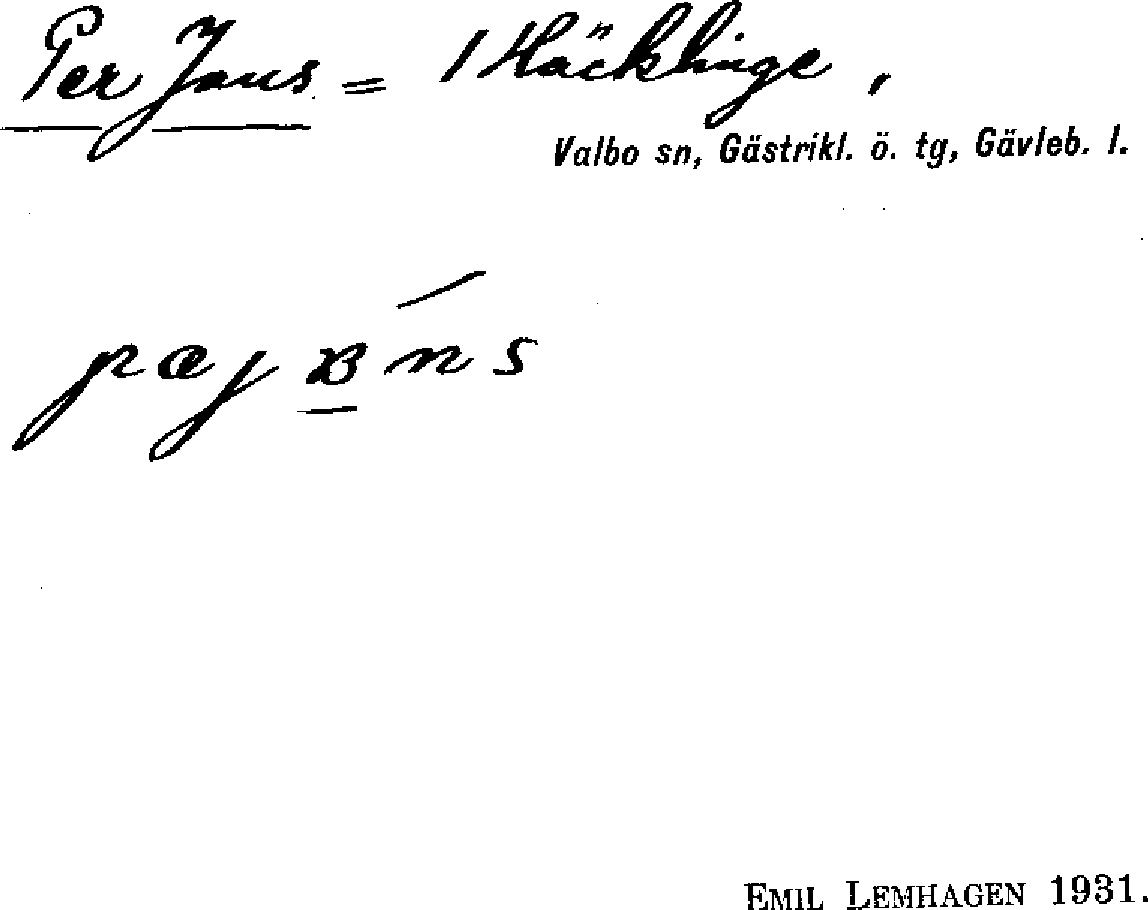 Per Jans = 1 Häcklinge,
Valbo sn, Gästrikl. ö. tg, Gävleb. l.
EMIL LEMHAGEN 1931.